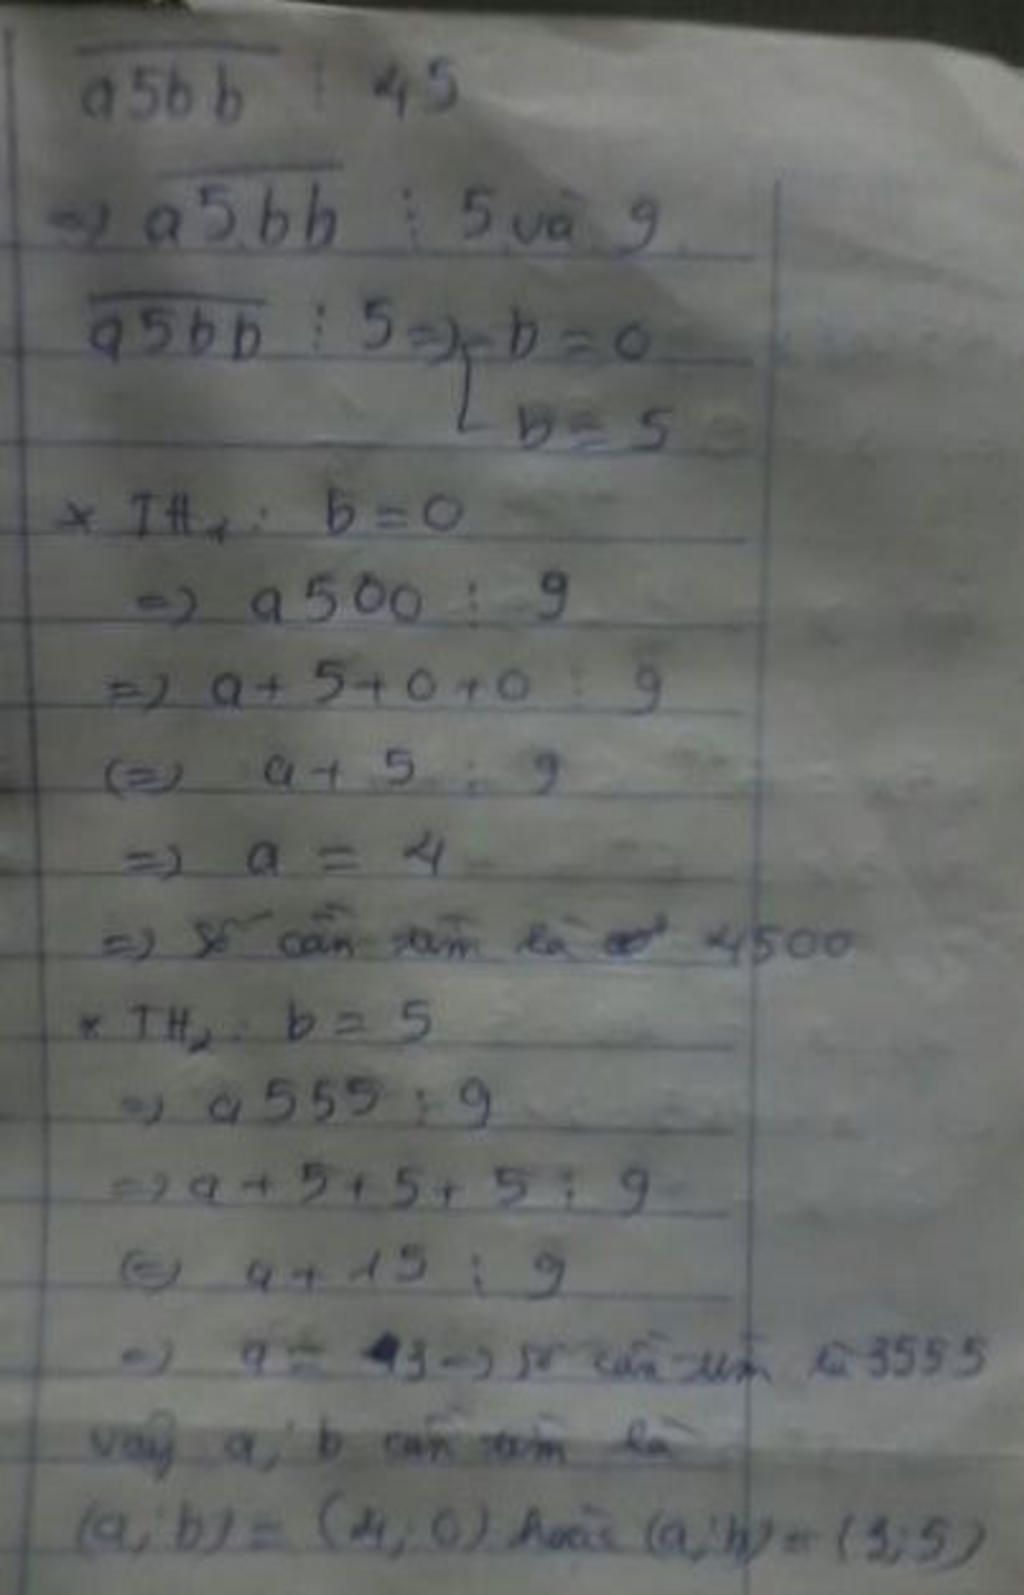 a5bb ⋮ 45
=> a5bb ⋮ 5 và 9
a5bb ⋮ 5 => b = 0
b = 5
* TH1: b = 0
=> a500 ⋮ 9
=> a + 5 + 0 + 0 ⋮ 9
<=> a + 5 ⋮ 9
=> a = 4
=> Số cần tìm là 4500
* TH2: b = 5
=> a555 ⋮ 9
=> a + 5 + 5 + 5 ⋮ 9
<=> a + 15 ⋮ 9
=> a = 3 => số cần tìm là 3555
vậy a, b cần tìm là
(a; b) = (4; 0) hoặc (a; b) = (3; 5)